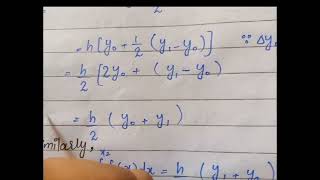 2
= h [ y₀ + 1/2 (y₁ - y₀) ] ∵ Δy
= h/2 [ 2y₀ + (y₁ - y₀)
= h/2 ( y₀ + y₁ )
milarly,
x₂ f(x) dx = h ( y₁ + y₂